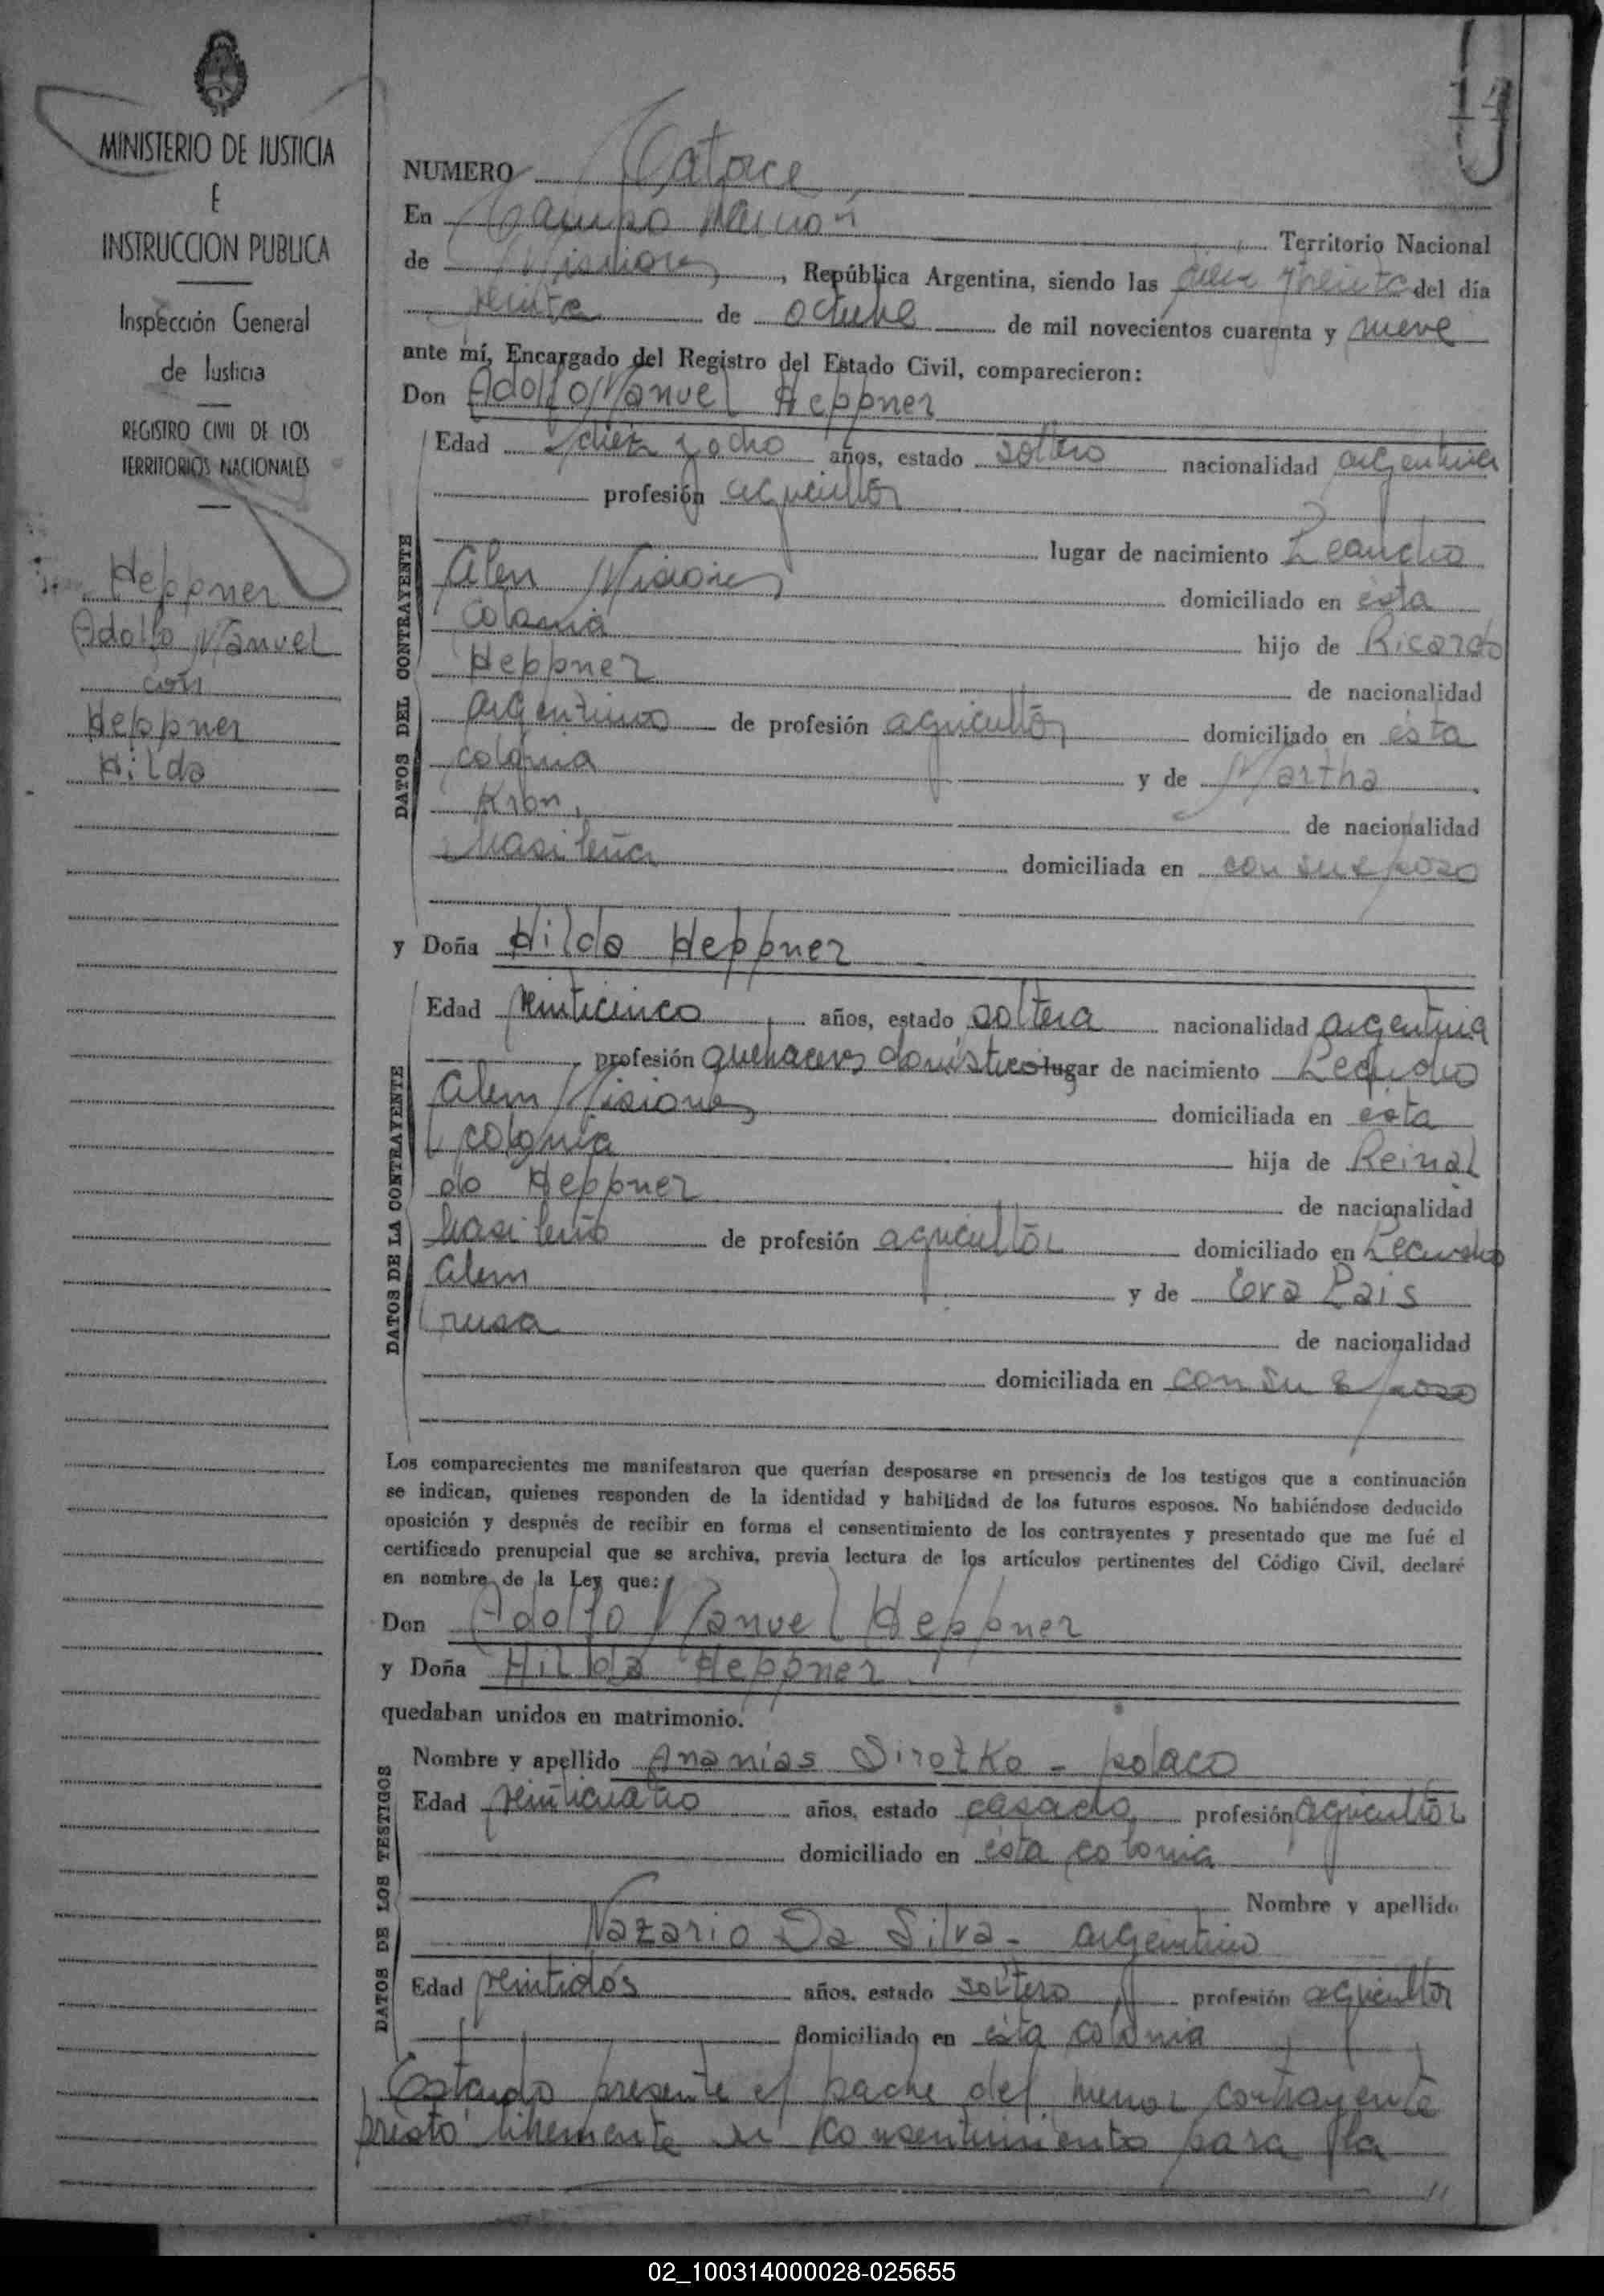 14
MINISTERIO DE JUSTICIA
E
INSTRUCCION PUBLICA
Inspección General
de Justicia
REGISTRO CIVIL DE LOS
TERRITORIOS NACIONALES
Heppner
Adolfo Manuel
con
Heppner
Hilda
NUMERO Catorce
En Campo Ramón Territorio Nacional
de Misiones, República Argentina, siendo las diez y treinta del día
veinte de octubre de mil novecientos cuarenta y nueve
ante mí, Encargado del Registro del Estado Civil, comparecieron:
Don Adolfo Manuel Heppner
Edad diez y ocho años, estado soltero nacionalidad argentina
profesión agricultor
lugar de nacimiento Leandro
Alen Misiones domiciliado en esta
colonia hijo de Ricardo
Heppner de nacionalidad
argentino de profesión agricultor domiciliado en esta
colonia y de Martha
Kron, de nacionalidad
brasileña domiciliada en con su esposo
DATOS DEL CONTRAYENTE
y Doña Hilda Heppner
Edad veinticinco años, estado soltera nacionalidad argentina
profesión quehaceres domésticos lugar de nacimiento Leandro
Alem Misiones domiciliada en esta
colonia hija de Reinal
do Heppner de nacionalidad
brasileño de profesión agricultor domiciliado en Leandro
Alem y de Eva Pais
rusa de nacionalidad
domiciliada en con su esposo
DATOS DE LA CONTRAYENTE
Los comparecientes me manifestaron que querían desposarse en presencia de los testigos que a continuación
se indican, quienes responden de la identidad y habilidad de los futuros esposos. No habiéndose deducido
oposición y después de recibir en forma el consentimiento de los contrayentes y presentado que me fué el
certificado prenupcial que se archiva, previa lectura de los artículos pertinentes del Código Civil, declaré
en nombre de la Ley que:
Don Adolfo Manuel Heppner
y Doña Hilda Heppner
quedaban unidos en matrimonio.
Nombre y apellido Ananias Sirotko - polaco
Edad veinticuatro años, estado casado profesión agricultor
domiciliado en esta colonia
Nombre y apellido
Nazario Da Silva - argentino
Edad veintidós años, estado soltero profesión agricultor
domiciliado en esta colonia
DATOS DE LOS TESTIGOS
Estando presente el padre del menor contrayente
prestó libremente su consentimiento para la
02_100314000028-025655